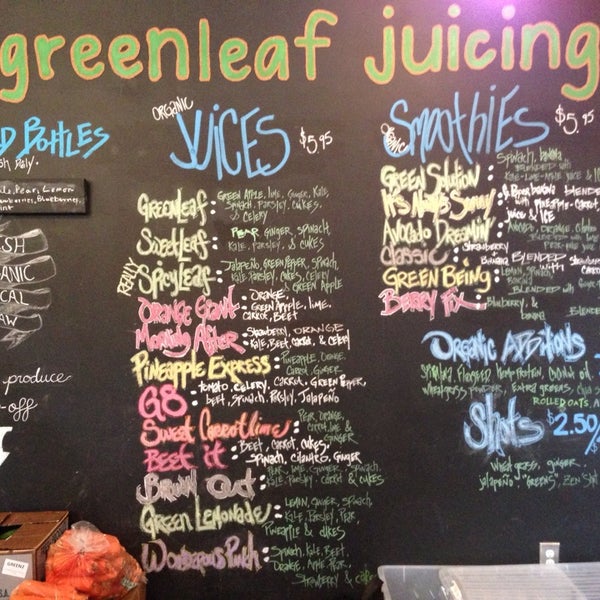 greenleaf juicing
BOTTLES
Pear, Lemon
Blueberries,
ORGANIC
produce
ORGANIC
JUICES $5.95
GREENLEAF: GREEN APPLE, LIME, GINGER, KALE,
SPINACH, PARSLEY, CUKES,
& CELERY
SWEETLEAF: PEAR, GINGER, SPINACH,
KALE, PARSLEY, & CUKES
REALLY
SPICYLEAF: JALAPEÑO, GREEN PEPPER, SPINACH,
KALE, PARSLEY, CUKES, CELERY
& GREEN APPLE
ORANGE GIANT: ORANGE,
GREEN APPLE, LIME,
CARROT, BEET
Morning After: STRAWBERRY, ORANGE
KALE, BEET, CARROT, & CELERY
PINEAPPLE EXPRESS: PINEAPPLE, ORANGE,
CARROT, GINGER
G8: TOMATO, CELERY, CARROT, GREEN PEPPER,
BEET, SPINACH, PARSLEY, JALAPEÑO
SWEET CARROTLIME: PEAR, ORANGE,
CARROT, LIME &
GINGER
BEET it: BEET, CARROT, CUKES,
SPINACH, CILANTRO, GINGER
Out: PEAR, LIME, GINGER, SPINACH,
KALE, PARSLEY, CARROT & CUKES
GREEN LEMONADE: LEMON, GINGER, SPINACH,
KALE, PARSLEY, PEAR,
PINEAPPLE & CUKES
Wonderous Punch: SPINACH, KALE, BEET,
ORANGE, APPLE, PEAR,
STRAWBERRY & CUKES
ORGANIC
Smoothies $5.95
GREEN SOLUTION: SPINACH, BANANA
BLENDED WITH
KALE-LIME-APPLE JUICE &
BANANA BLENDED
WITH PINEAPPLE-CARROT
JUICE & ICE
AVOCADO DREAMIN': AVOCADO, ORANGE,
BLENDED
PEAR-LIME JUICE
CLASSIC: STRAWBERRY
BANANA BLENDED WITH
GREEN BEING: LEMON, SPINACH,
BLENDED WITH
BERRY FIX: BLUEBERRY, &
BANANA BLENDED
ORGANIC ADDITIONS
FLAXSEED, HEMP PROTEIN,
WHEATGRASS POWDER, EXTRA GREENS, CHIA
ROLLED OATS
Shots $2.50/
WHEATGRASS, GINGER,
JALAPEÑO "GREENS", ZEN